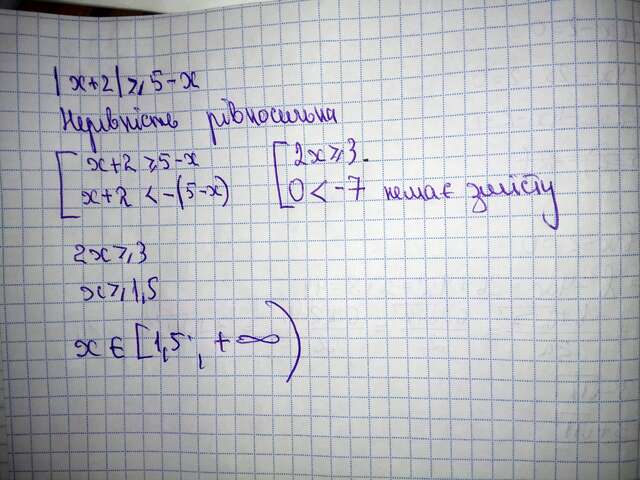 |x+2| ≥ 5-x
Нерівність рівносильна
[ x+2 ≥ 5-x [ 2x ≥ 3
x+2 < -(5-x) 0 < -7 немає змісту
2x ≥ 3
x ≥ 1,5
x ∈ [1,5; +∞)